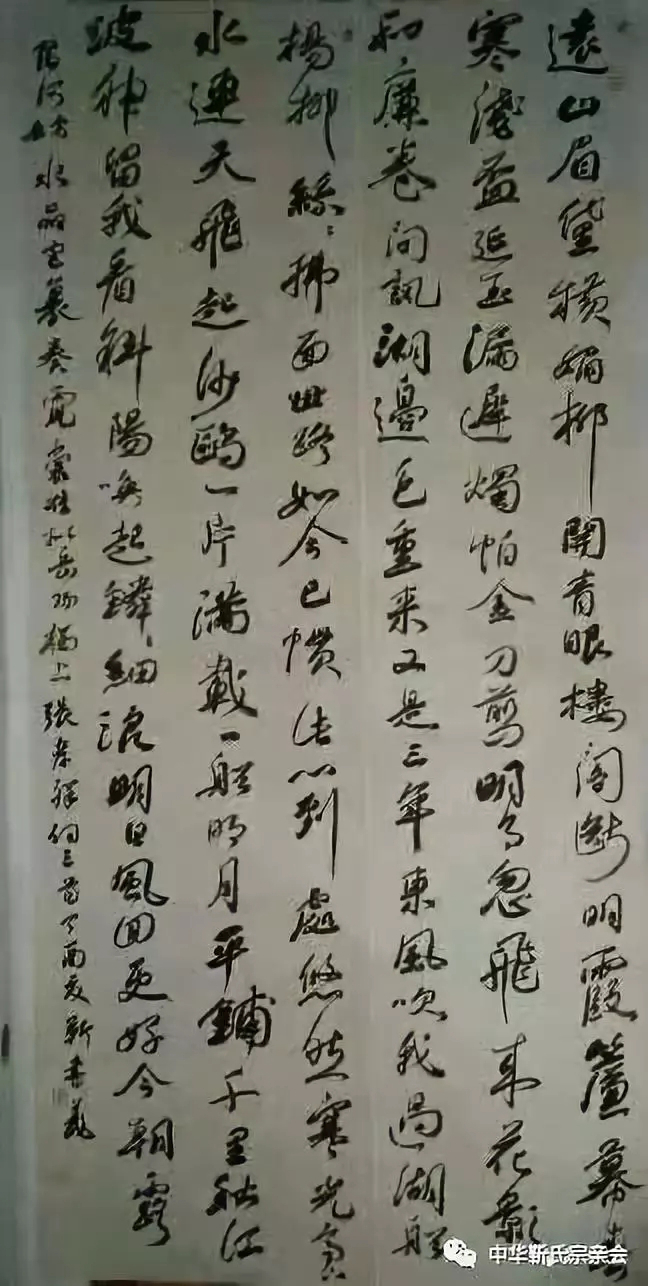 遠山眉黛橫媚柳開青眼樓閣斷明霞簾幕春
寒淺盃延玉漏遲燭怕金刀剪明月忽飛來花影
和簾卷問訊湖邊色重來又是三年東風吹我過湖船
楊柳絲絲拂面世路如今已慣此心到處悠然寒光亭下
水連天飛起沙鷗一片滿載一船明月平鋪千里秋江
波神留我看斜陽喚起鱗鱗細浪明日風回更好今朝露
宿何妨水晶宮裏奏霓裳準擬岳陽樓上張孝祥詞三首丁酉夏
中华靳氏宗亲会